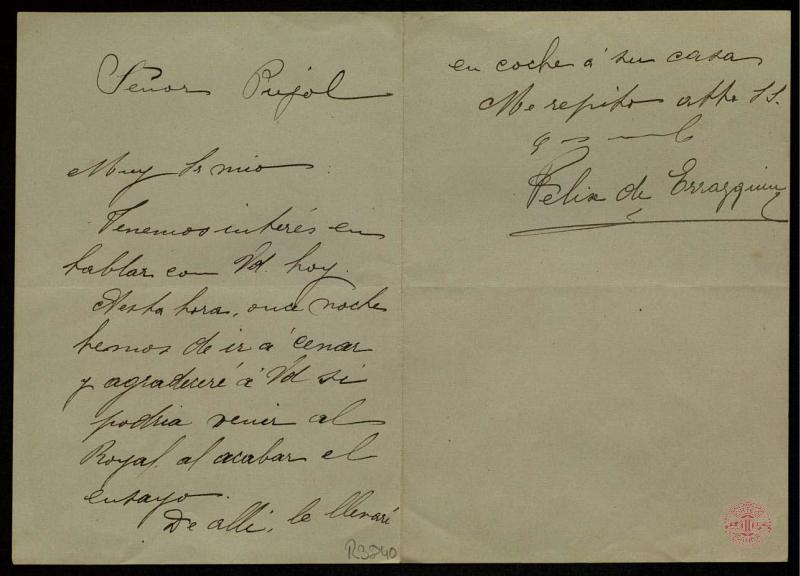 Señor Pujol
Muy Sr mio:
Tenemos interés en
hablar con Vd. hoy.
A esta hora, once noche
hemos de ir á cenar
y agradeceré á Vd si
podria venir al
Royal al acabar el
ensayo.
De alli, le llevaré
R3240
en coche á su casa
Me repito atto SS.
q
Felix de Errazquin